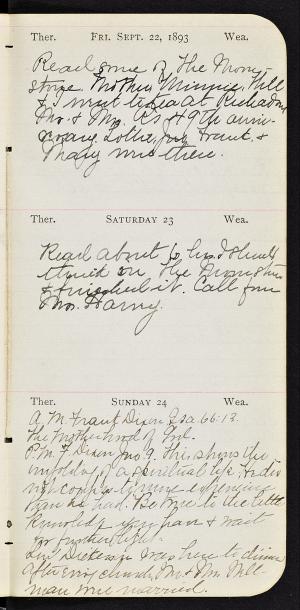 Ther. FRI. SEPT. 22, 1893 Wea.
Read some of The Moon-
stone. Mother, Minnie, Will
& I went to tea at Richardson
Mr. & Mrs. R's 49th anni-
versary. Lottie, Frank &
Mary were there.
Ther. SATURDAY 23 Wea.
Read about 6 hrs. I should
think on The Moonstone
& finished it. Call from
Mrs.
Ther. SUNDAY 24 Wea.
A.M. Frank Dixon Isa. 66:13.
The Motherhood of God.
P.M. F. Dixon Jno. 9. This shows the
unfolding of a spiritual life. He did
not
than he had. Be true to the little
knowledge you have & wait
for further light.
Dickerson was here to dinner
After evening church, Mr. & Mrs. Will-
man were married.